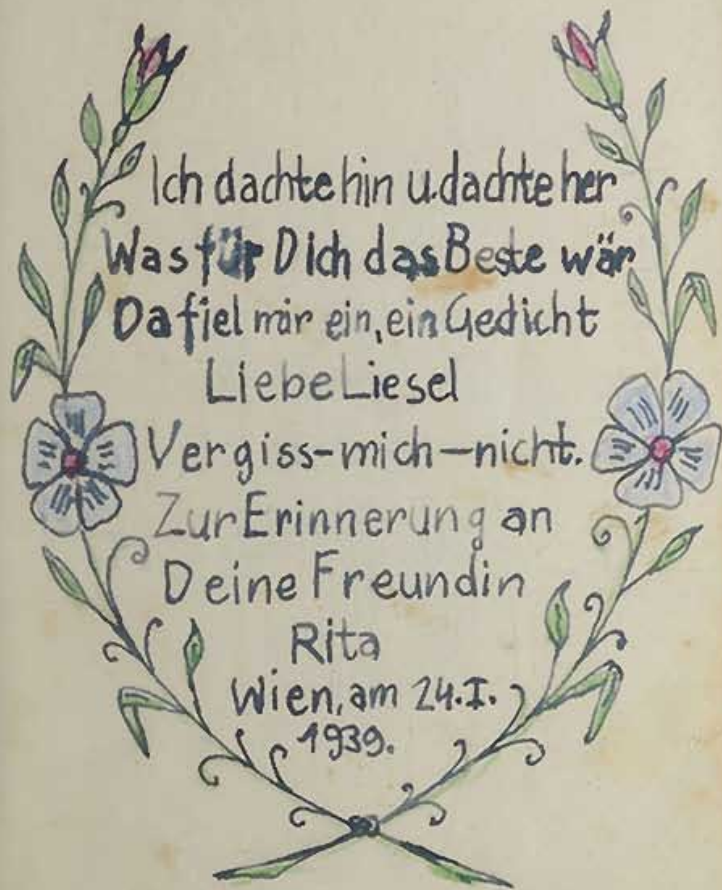 Ich dachte hin u. dachte her
Was für Dich das Beste wär
Da fiel mir ein, ein Gedicht
Liebe Liesel
Vergiss-mich-nicht.
Zur Erinnerung an
Deine Freundin
Rita
Wien, am 24.I.
1939.